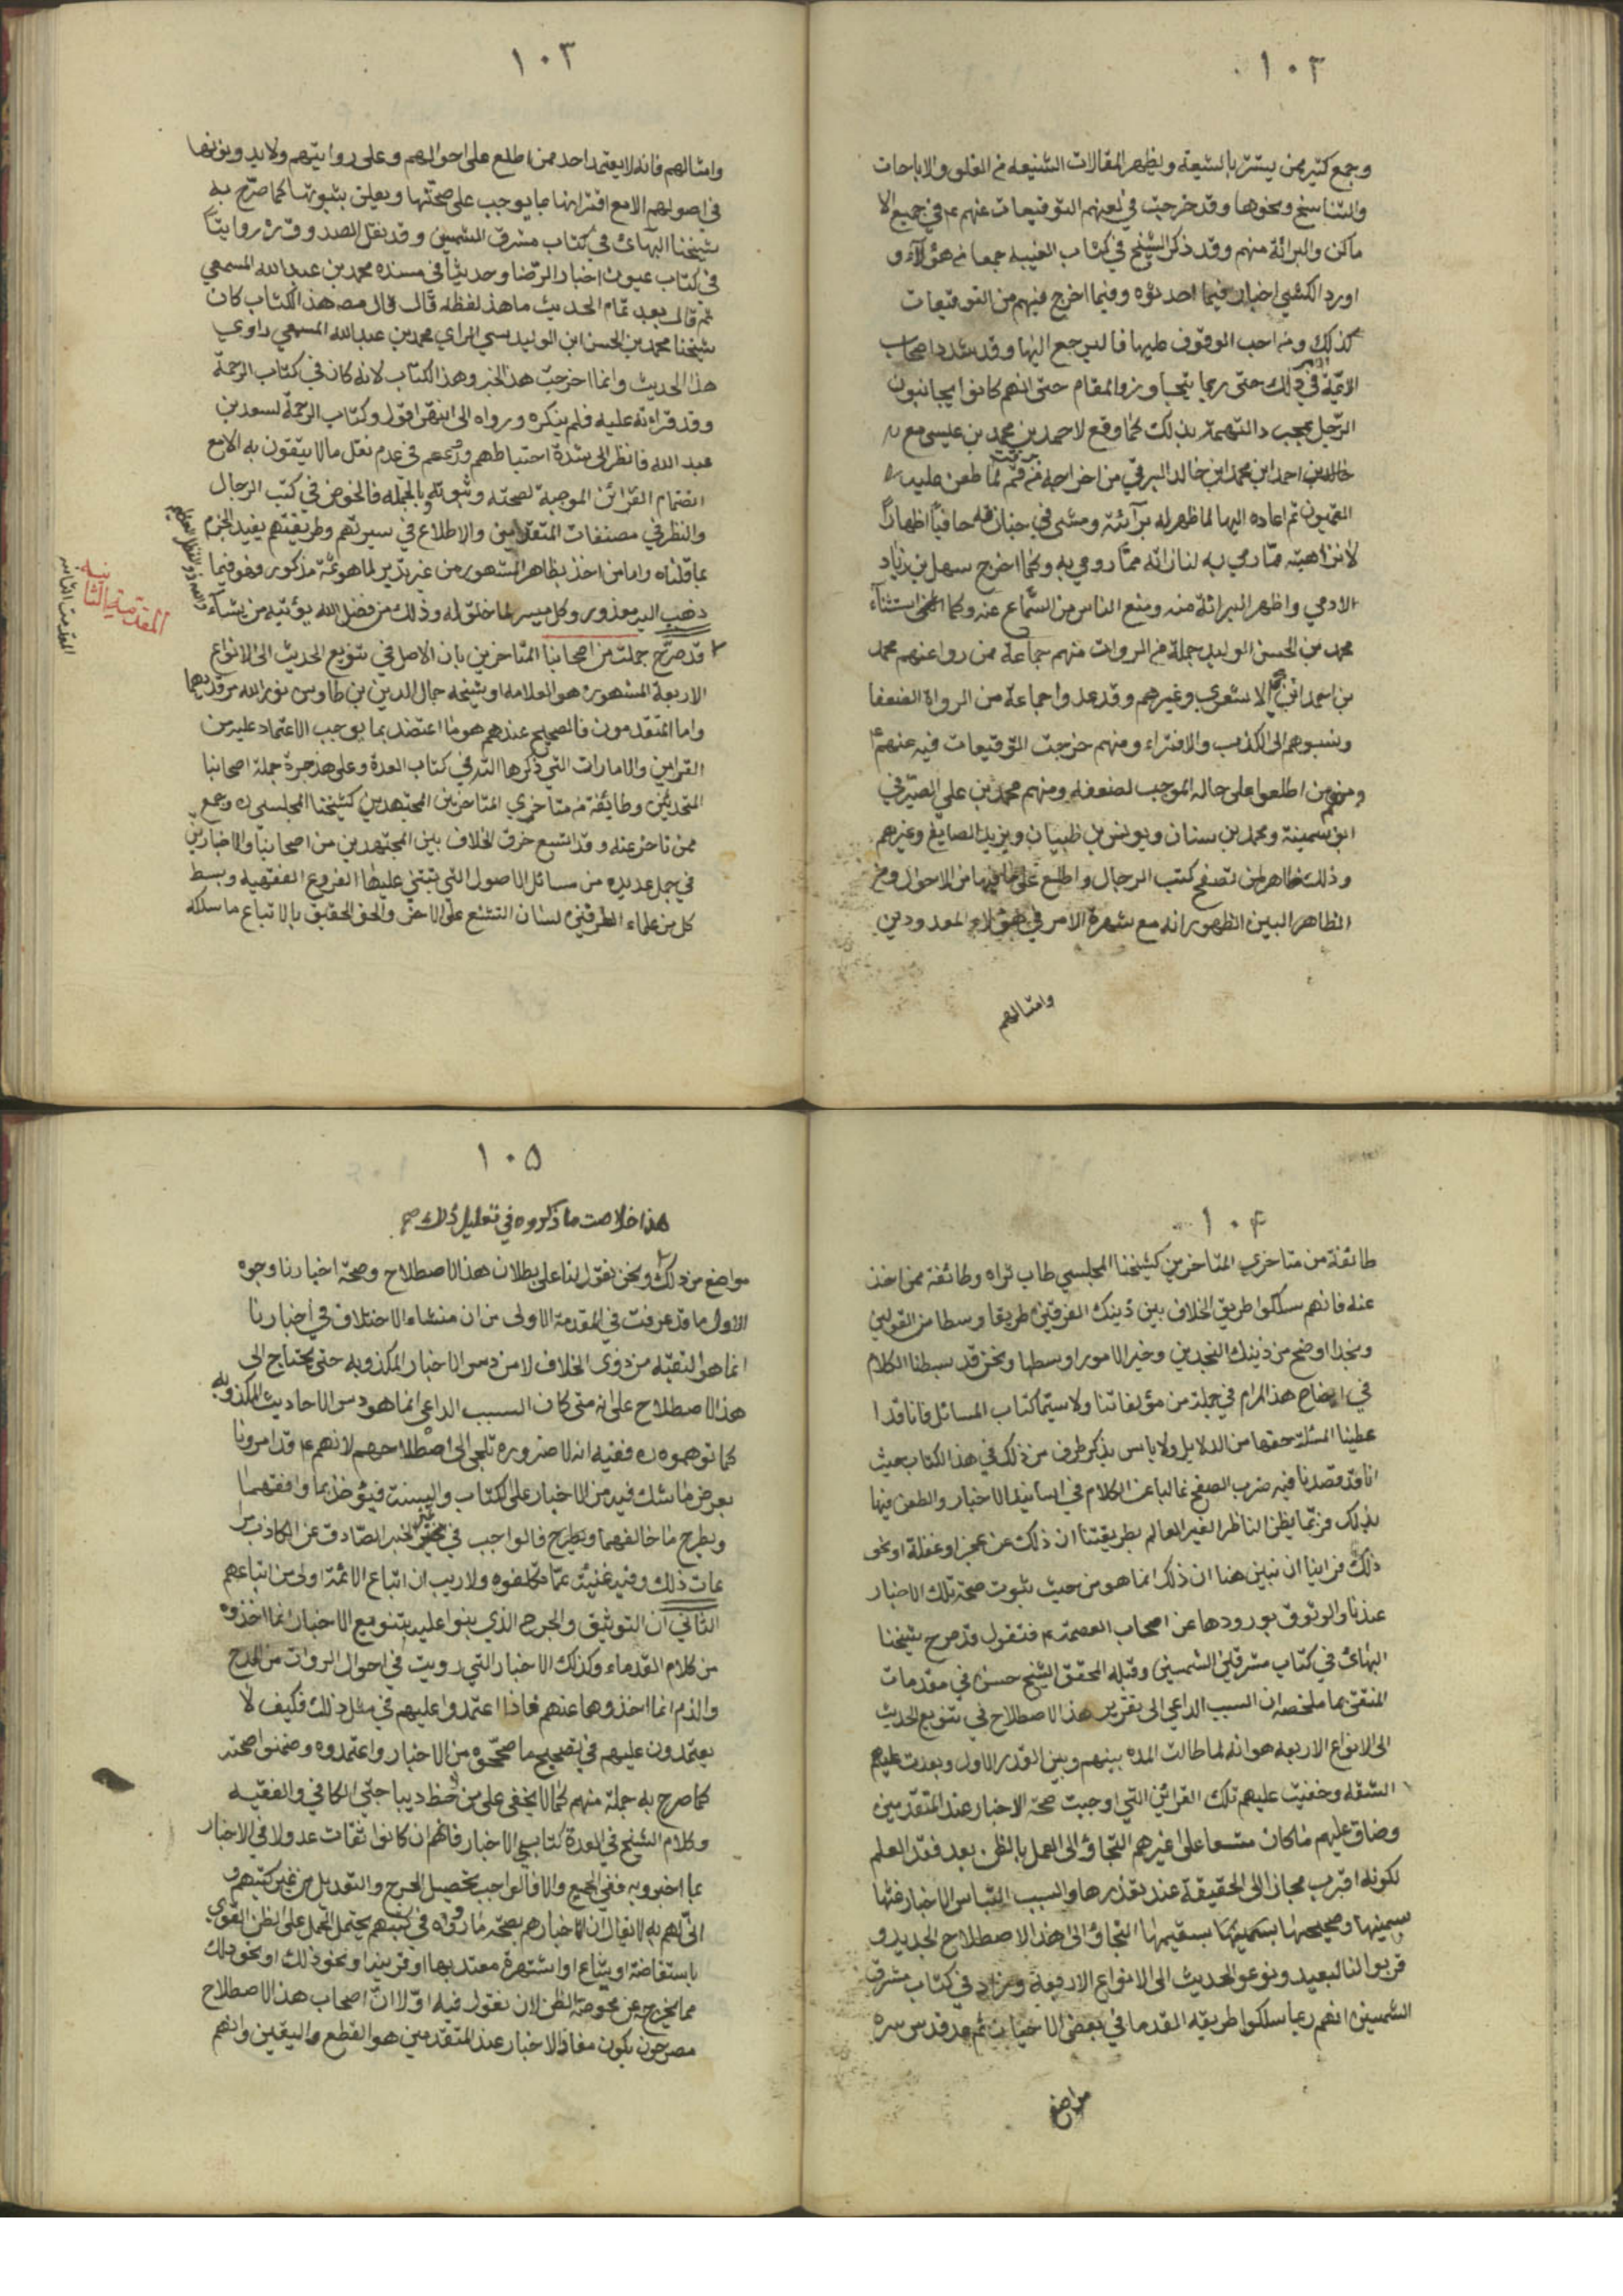 ١٠٢
وجمع كثير ممن يتستر بالشيعة ويظهر المقالات الشنيعه من الغلو والاباحات
والتناسخ ونحوها وقد خرجت في لعنهم التوقيعات عنهم ع في جميع الا
ماكن والبرائة منهم وقد ذكر الشيخ في كتاب الغيبه جمعا من هؤلآء و
اورد الكشي اخبار فيما احدثوه وفيما اخرج فيهم من التوقيعات
كذلك ومن احب الوقوف عليها فاليرجع اليها وقد شدد اصحاب
الائمّة في ذلك الامر حتى ربما يتجاوزوا المقام حتى انهم كانوا يجانبون
الرجل بمجرد التهمة بذلك كما وقع لاحمد بن محمد بن عيسى مع
خالد بن احمد ابن محمد ابن خالد البرقي من اخراجه من قم لما طعن عليه
القميون ثم اعاده اليها لما ظهر له برآئته ومشى في جنازته حافيًا اظهارًا
لانزاهته مما رمي به وكما اخرج سهل بن زياد
الادمي واظهر البرائة منه ومنع الناس من السّماع عنه وكما استثنآء
محمد بن الحسن الوليد جملة من الروات منهم جماعة ممن روا عنهم محمد
بن احمد ابن يحيى الاشعري وغيرهم وقد عدوا جماعة من الرواة الضعفا
ونسبوهم الى الكذب والافتراء ومنهم خرجت التوقيعات فيه عنهم ع
ومنهم من اطلعوا على حاله الموجب لضعفه ومنهم محمد بن علي الصيرفي
ابو سمينة ومحمد بن سنان ويونس بن ظبيان ويزيد الصايغ وغيرهم
وذلك ظاهر لمن تصفح كتب الرجال واطلع على ما فيها من الاحوال ومن
الظاهر البين الظهور انه مع شهرة الامر في هؤلاء المعدودين
وامثالهم
١٠٣
وامثالهم فانه لا يعتمد احد ممن اطلع على احوالهم وعلى روايتهم ولا يدونونها
في اصولهم الا مع اقترانها بما يوجب على صحتها ويعلن بثبوتها كما صرّح به
شيخنا البهائي في كتاب مشرق الشمسين وقد نقل الصدوق ره روايتًا
في كتاب عيون اخبار الرّضا وحديثا في سنده محمد بن عبدالله المسمعي
ثم قال بعد تمام الحديث ما هذ لفظه قال قال مص هذ الكتاب كان
شيخنا محمد بن الحسن ابن الوليد سيئ الراي محمد بن عبدالله المسمعي راوي
هذا الحديث وانما اخرجت هذ الخبر وهذ الكتاب لانه كان في كتاب الرحمة
وقد قراءته عليه فلم ينكره ورواه الى انتهى اقول وكتاب الرّحمة لسعد بن
عبد الله فانظر الى شدة احتياطهم وورعهم في عدم نقل ما لا يثقون به الا مع
انضمام القرائن الموجبة لصحته وثبوته وبالجمله فالخوض في كتب الرجال
والنظر في مصنفات المتقدمين والاطلاع في سيرتهم وطريقتهم يفيد الجزم
بما قلناه واما من اخذ بظاهر المشهور من غير تدبر لما هو ثمّة مذكور فهو فيما
ذهب اليه معذور وكل ميسر لما خلق له وذلك من فضل الله يؤتيه من يشآء
والله ذو الفضل العظيم
المقدمة الثانية
المقدمت الثانيه
قد صرّح جملت من اصحابنا المتاخرين بان الاصل في تنويع الحديث الى الانواع
الاربعة المشهوره هو العلامه او شيخه جمال الدين بن طاوس نور الله مرقديهما
واما المتقدمون فالصحيح عندهم هو ما اعتضد بما يوجب الاعتماد عليه من
القراين والامارات التي ذكرها الشيخ في كتاب العدة وعلى هذ جرة جملة اصحابنا
المحدثين وطايفة من متاخري المتاخرين المجتهدين كشيخنا المجلسي ره وجمع
ممن تاخر عنه وقد اتسع خرق الخلاف بين المجتهدين من اصحابنا والاخباريين
في جمل عديده من مسائل الاصول التي تبتني عليها الفروع الفقهيه وبسط
كل من علماء الطرفين لسان التشنع على الاخر والحق الحقيق بالاتباع ما سلكه
١٠٤
طائفة من متاخري المتاخرين كشيخنا المجلسي طاب ثراه وطائفة ممن اخذ
عنه فانهم سلكوا طريق الخلاف بين ذينك الفرقين طريقا وسطا من القولين
ونجدا اوضح من ذينك النجدين وخير الامور اوسطها ونحن قد بسطنا الكلام
في ايضاح هذ المرام في جملة من مؤلفاتنا ولا سيّما كتاب المسائل فانا قد ا
عطينا المسئلة حقها من الدلايل ولا باس بذكر طرف من ذلك في هذ الكتاب حيث
انا قد قصدنا فيه ضرب الصفح غالبا عن الكلام في اسانيد الاخبار والطعن فيها
بذلك فربّما يظن الناظر الغير العالم بطريقتنا ان ذلك عن عجز او غفلة او نحو
ذلك فراينا ان نبين هنا ان ذلك انما هو من حيث ثبوت صحة تلك الاخبار
عندنا والوثوق بورودها عن اصحاب العصمة ع فنقول قد صرح شيخنا
البهائي في كتاب مشرقين الشمسين وقبله المحقق الشيخ حسن في مقدمات
المنتقى بما ملخصه ان السبب الداعي الى تقرير هذ الاصطلاح في تنويع الحديث
الى الانواع الاربعه هو انه لما طالت المده بينهم وبين الصدر الاول وبعدت عليهم
الشقه وخفيت عليهم تلك القرائن التي اوجبت صحة الاخبار عند المتقدمين
وضاق عليهم ما كان متسعا على غيرهم التجاؤ الى العمل بالظن بعد فقد العلم
لكونه اقرب مجاز الى الحقيقة عند تعذرها والسبب التباس الاخبار غثها
بسمينها وصحيحها بسقيمها التجاؤ الى هذ الاصطلاح الجديد و
قربوا لنا البعيد ونوعو الحديث الى الانواع الاربعة وزاد في كتاب مشرق
الشمسين انهم ربما سلكوا طريقه القدما في بعض الاخبار ثم عد قدس سره
مواضع
١٠٥
هذا خلاصت ما ذكروه في تعليل ذلك صح
مواضع من ذلك ونحن نقول لنا على بطلان هذ الاصطلاح وصحة اخبارنا وجوه
الاول ما قد عرفت في المقدمة الاولى من ان منشاء الاختلاف في اخبارنا
انما هو التقيه من ذوى الخلاف لا من دس الاخبار المكذوبه حتى يحتاج الى
هذ الاصطلاح على انه متى كان السبب الداعي انما هو دس الاحاديث المكذوبه
كما توهموه ره ففيه انه لا ضروره تلجى الى اصطلاحهم لانهم ع قد امرونا
بعرض ما شك فيه من الاخبار على الكتاب والسنة فيؤخذ بما وافقهما
ويطرح ما خالفهما فالواجب في تميز الخبر الصادق عن الكاذب مرا
عات ذلك وفيه غنية عمّا تكلفوه ولا ريب ان اتباع الائمة اولى من اتباعهم
الثاني ان التوثيق والجرح الذي بنوا عليه تنويع الاخبار انما اخذوه
من كلام القدماء وكذلك الاخبار التي رويت في احوال الروات من المدح
والذم انما اخذوها عنهم فاذا اعتمدوا عليهم في مثل ذلك فكيف لا
يعتمدون عليهم في تصحيح ما صححوه من الاخبار واعتمدوه وضمنوا صحته
كما صرح به جملة منهم كما لا يخفى على من لاحظ ديباجتي الكافي والفقيه
وكلام الشيخ في العدة وكتابي الاخبار فانهم ان كانوا ثقات عدولا في الاخبار
بما اخبروا به ففي الجميع والا فالواجب تحصيل الجرح والتعديل من غير كتبهم و
انّى لهم به لا يقال ان اخبارهم بصحة ما رووه في كتبهم يحتمل الحمل على الظن القوي
باستفاضة او شياع او اشتهرة معتد بها او قرينه او نحو ذلك
مما يخرجه عن محوضة الظن لان نقول فيه اولا ان اصحاب هذ الاصطلاح
مصرحون بكون مفاد الاخبار عند المتقدمين هو القطع واليقين وانهم